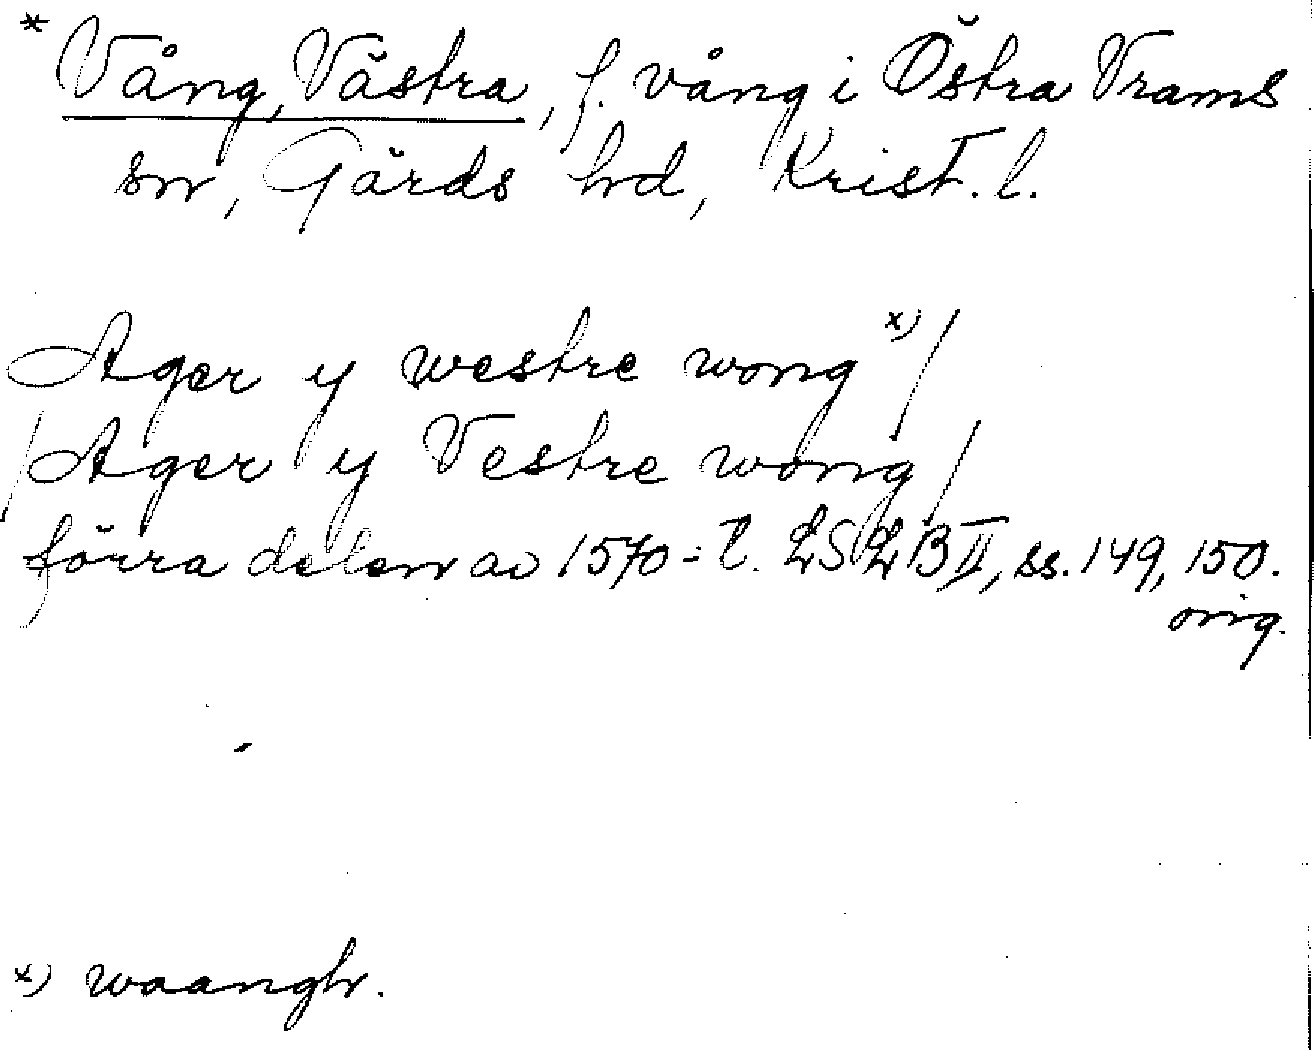 * Vång, Västra, f. vång i Östra Vrams
sn, Gärds hd, Krist. l.
Ager y westre wong x) /
/ Ager y Vestre wong /
förra delen av 1570-t. LSLB II, ss. 149, 150.
orig.
x) waangh.